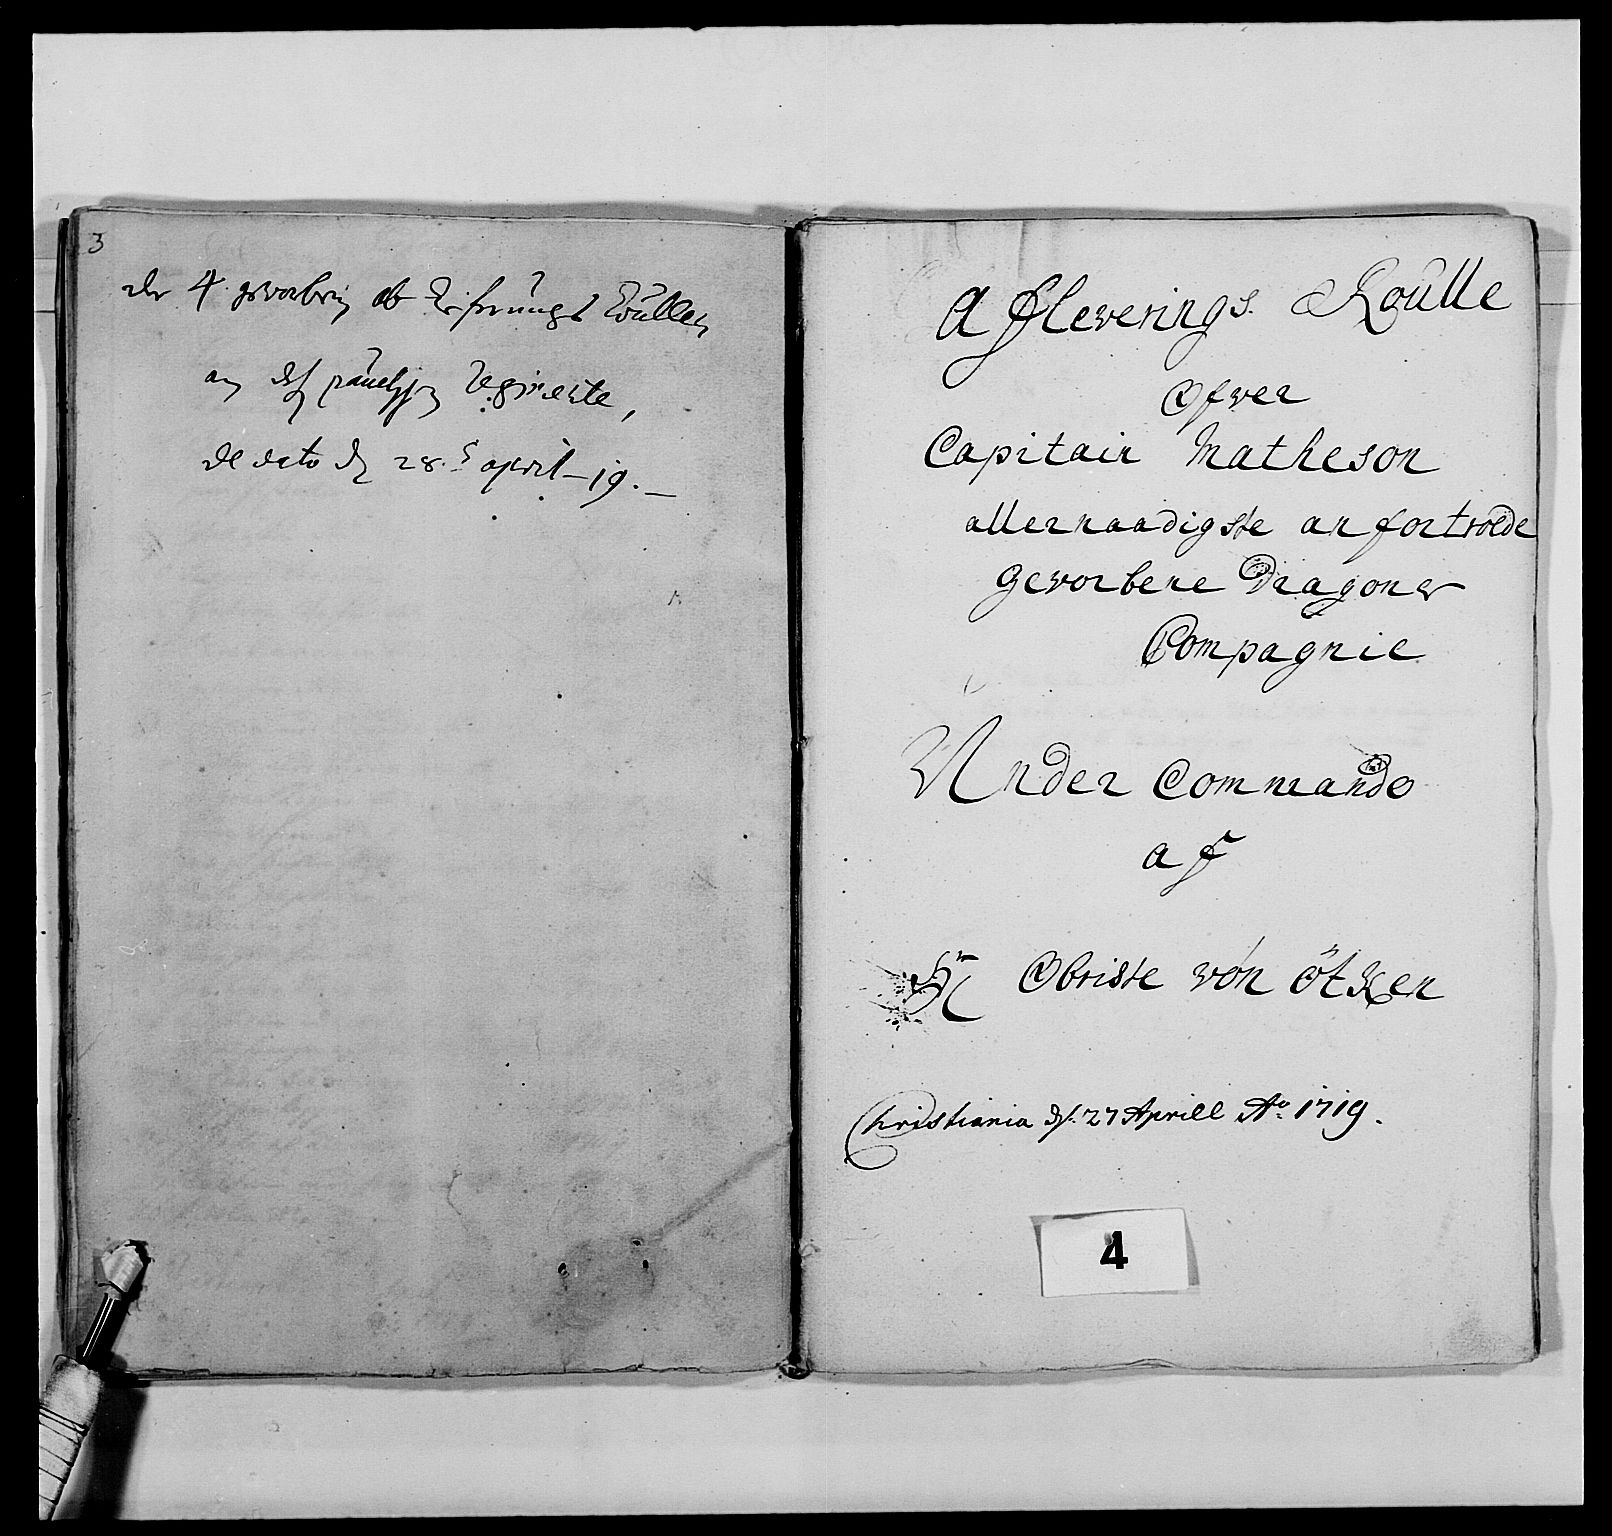 3
der 4 geworbenen ab lieferungs Roullen
an das
Regimente,
de dato d 28. april 19.
Afleverings. Roulle
Ofver
Capitain Matheson
allernaadigste anfortroede
gevorbene Dragoner
Compagnie
Under Commando
af
Hr Obriste von ötken
Christiania d. 27 Aprill Ao 1719.
4